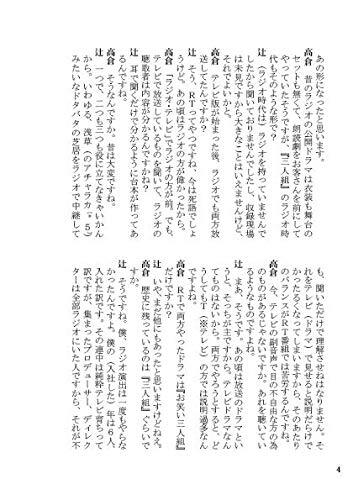 あの形になったと思います。
高倉　昔のラジオの公開ドラマは衣装も舞台の
セットも無くて、朗読劇をお客さんを前にして
やっていたそうですが、『三人組』のラジオ時
代もそのような形で？
辻　（ラジオ時代は）ラジオを持っていませんで
したから聞いておりませんでしたし、収録現場
は未見ですから大きなことはいえませんけど、
それでよいかと。
高倉　テレビ版が始まった後、ラジオでも両方放
送してたんですか？
辻　そう、RTってやつですね、今は死語でしょ
うけど。あの頃はラジオの方が偉かったから。
高倉　「ラジオ・テレビ」でラジオの方が前。でも
テレビで放送しているものを聞いて、ラジオの
聴取者は内容が分かるんですかね？
辻　耳で聞くだけで分かるように台本が作ってあ
るんですね。
高倉　そうなんですか。昔は大変ですね。
辻　一つで、二つも三つも役に立てなきゃいかん
から。いわゆる、浅草（のアチャラカ（*5）
みたいなドタバタの芝居をラジオで中継して
も、聞いただけで理解させねばなりません。そ
れをテレビ（ドラマ）で見せると説明だらけで
かったるくなってしまいますから、そのあたり
のバランスがRT番組では苦労するんですね。
高倉　今、テレビの副音声で目の不自由な方の為
のものがあるじゃないですか。あれを聴いてい
るようなものですよね。
辻　まあ、そうですね。あの頃は放送のドラマとい
うと、そっちが主ですから。テレビドラマなん
てものはないから。両方でやろうとすると、ど
うしてもT（※テレビ）の方では説明過多なん
だけですよ。
高倉　RTで、両方やったドラマは『お笑い三人組』
だけですか？
辻　いや、まだ他にもあったと思いますけどねえ。
高倉　歴史に残っているのは『三人組』ぐらいで
すか。
辻　そうですね。僕、ラジオ演出は一度もやらな
かったんですよ。僕の（入社した）年は6人、
れた訳です。その連中は純粋テレビ育ちって
訳ですが、集まったプロデューサー、ディレク
ターは全部ラジオにいた人ですから、それが不
4